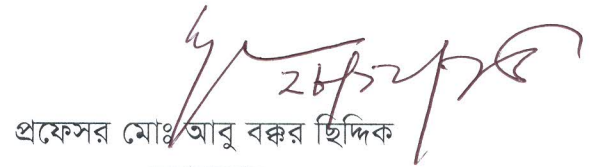 প্রফেসর মোঃ আবু বক্কর ছিদ্দিক